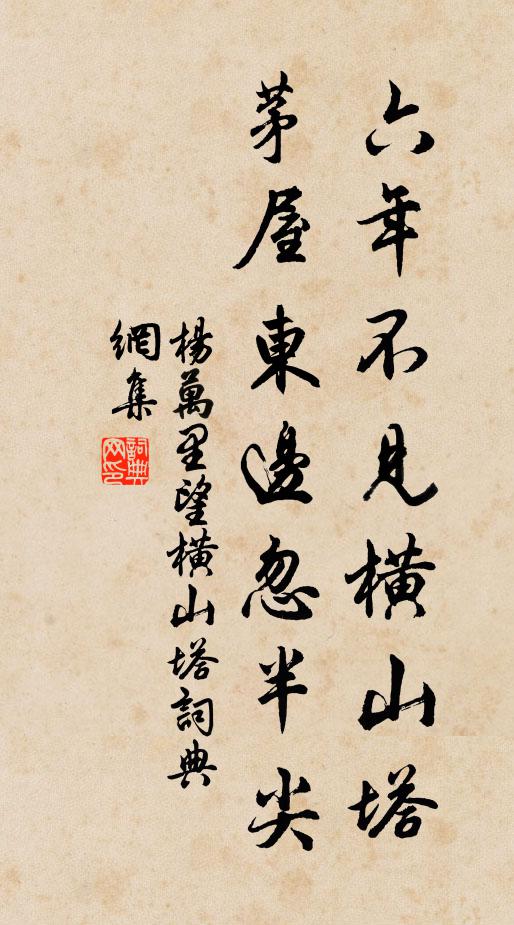 六年不見橫山塔
茅屋東邊忽半尖
楊萬里望橫山塔詞典
網集
詞典网印